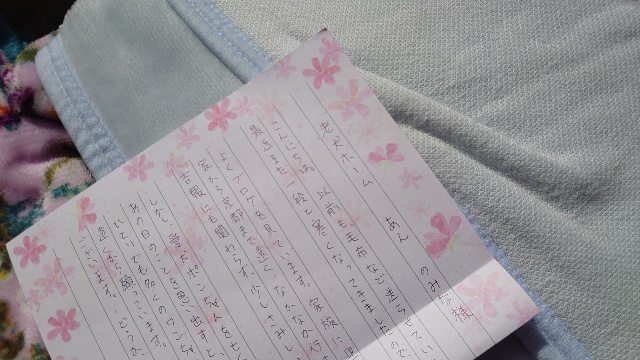 老犬ホーム あんのみな様
こんにちは 以前も毛布など送らせてい
最近また一段と寒くなってきましたので
よくブログを見ています。家族に
家から京都まで遠く、なかなか行
吉報にも関わらず、少しさみし
しかし 愛犬ポンちゃんをも
あの日のことを思い出すと
いとりでも多くのワンち
遠くから願っています。どうか
ございます。